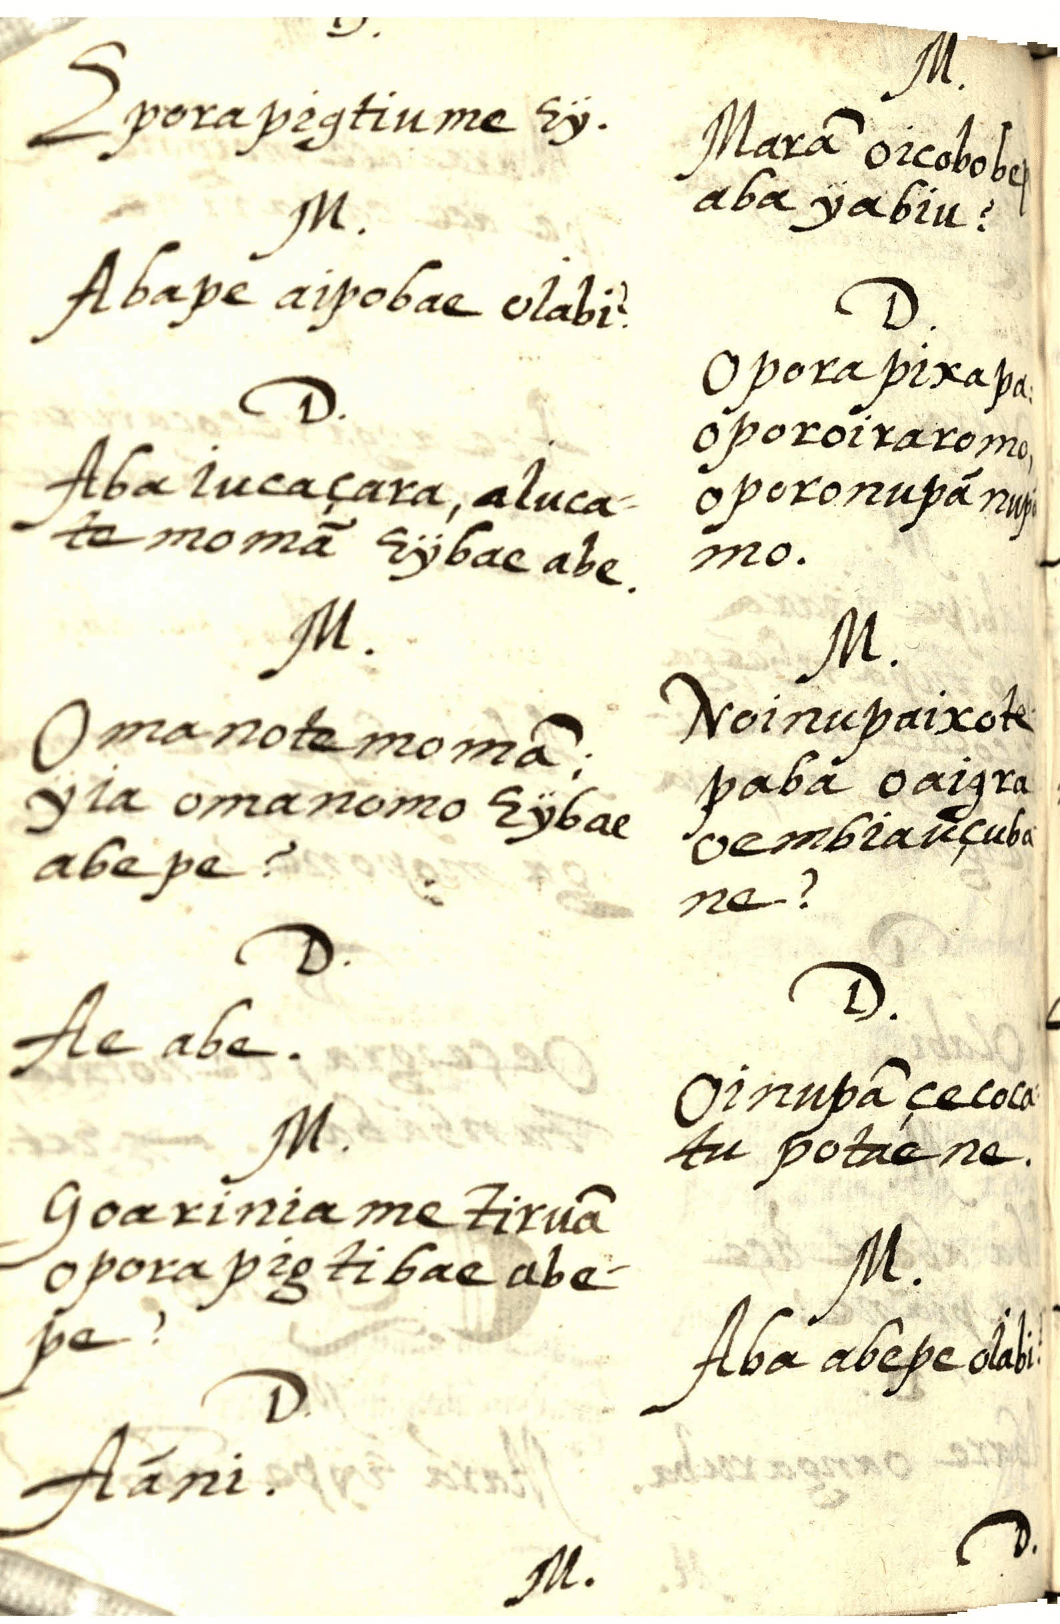 Eporapigtiume Eÿ.
M.
Abape aipobae oIabi?
D.
Aba Iucaçara, aIuca-
te momã Eÿbae abe.
M.
Omanotemomã;
ÿia omanomo Eÿbae
abepe?
D.
Ae abe.
M.
Goariniame tiruã
oporapigtibae abe-
pe?
D.
Aáni.
M.
M.
Marã oicobobe
aba ÿabiu?
D.
Oporapixapa:
oporoiraromo,
oporonupã nupã
mo.
M.
Noinupaixote
pabá oaigra
oembiaûçuba
ne?
D.
Oinupã çecoca-
tu potáe ne.
M.
Aba abepe oIabi?
D.